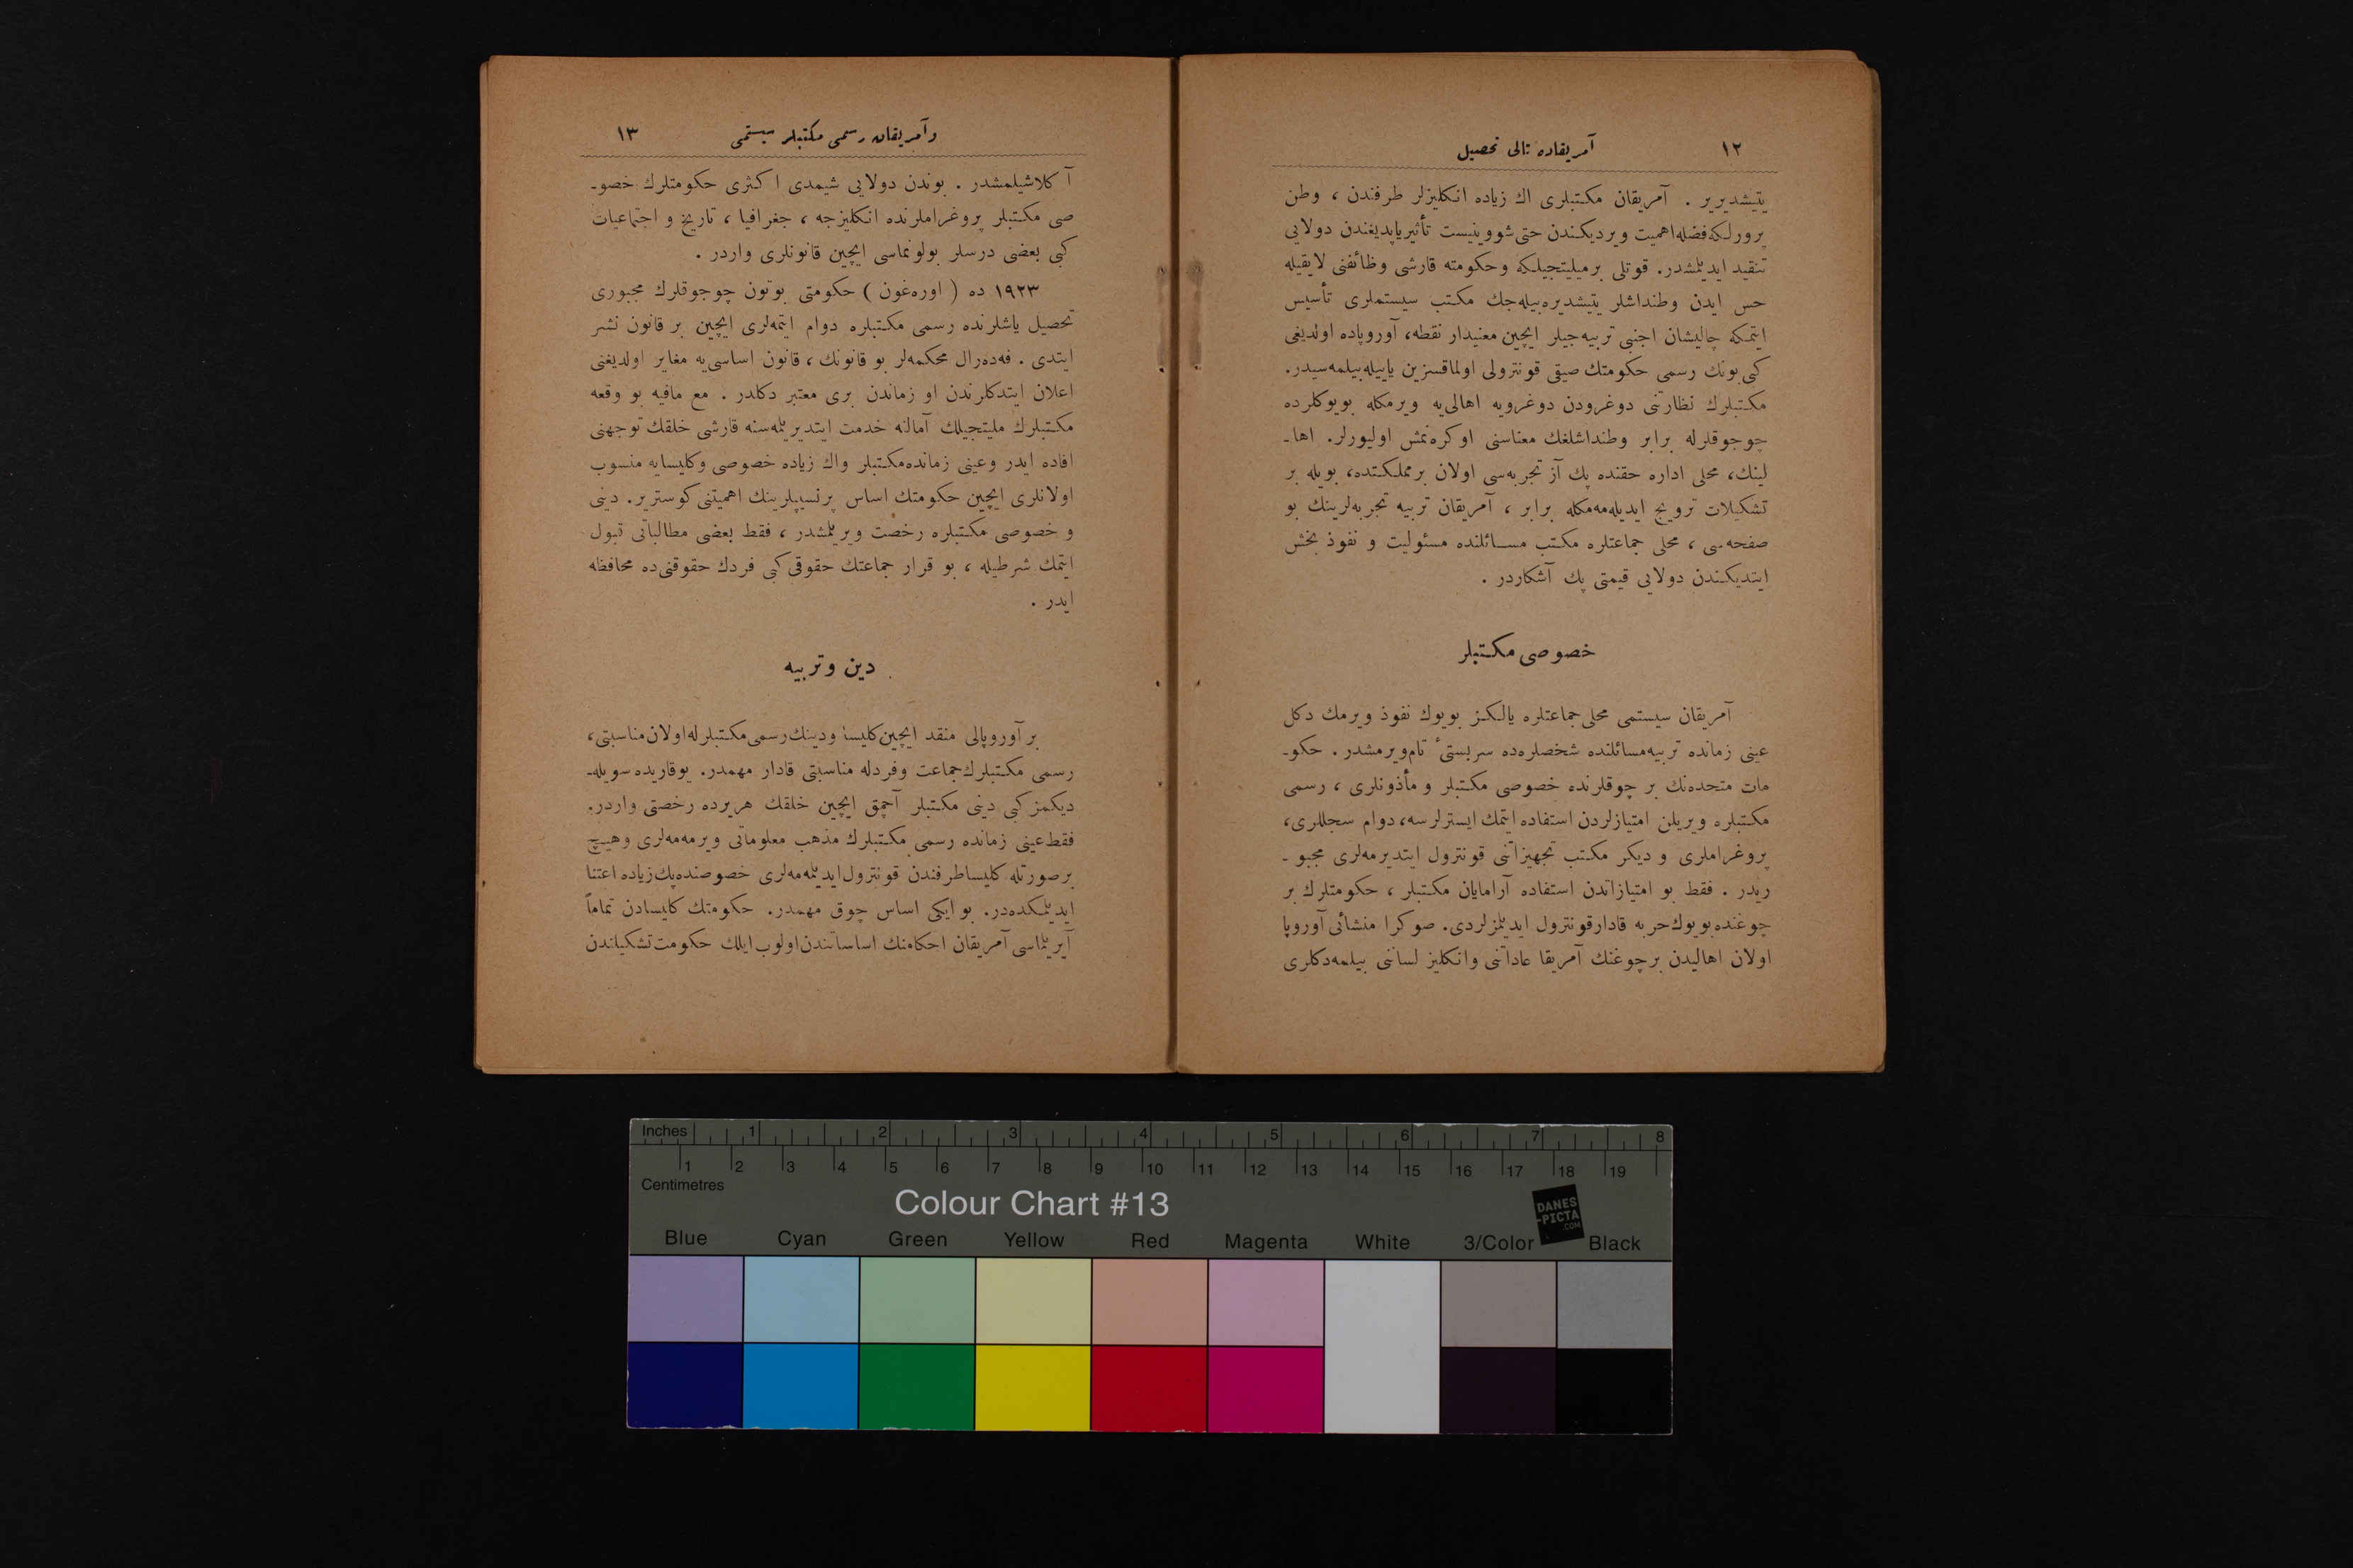 ١٢
آمریقاده تالی تحصیل
یتیشدیریر . آمریقان مکتبلری اك زیاده انکلیزلر طرفندن ، وطن
پرورلکه فضله اهمیت ویردیکندن حتی شووینیست تأثیر یاپدیغندن دولایی
تنقید ایدیلمشدر. قوتلی بر میلیتجیلکه و حکومته قارشی وظائفنی لایقیله
حس ایدن وطنداشلر یتیشدیره‌بیله‌جك مکتب سیستملری تأسیس
ایتمکه چالیشان اجنبی تربیه‌جیلر ایچین معنیدار نقطه، آوروپاده اولدیغی
کبی بونك رسمی حکومتك صیقی قونترولی اولماقسزین یاپیله‌بیلمه‌سیدر.
مکتبلرك نظارتنی دوغرودن دوغرویه اهالی‌یه ویرمکله بویوکلرده
چوجوقلرله برابر وطنداشلغك معناسنی اوکره‌نمش اولیورلر. اها-
لینك، محلی اداره حقنده پك آز تجربه‌سی اولان بر مملکتده، بویله بر
تشکیلات ترویج ایدیله‌مه‌مکله برابر ، آمریقان تربیه تجربه‌لرینك بو
صفحه‌سی ، محلی جماعتلره مکتب مسائلنده مسئولیت و نفوذ بخش
ایتدیکندن دولایی قیمتی پك آشکاردر .
خصوصی مکتبلر
آمریقان سیستمی محلی جماعتلره یالکز بویوك نفوذ ویرمك دکل
عینی زمانده تربیه مسائلنده شخصلره‌ده سربستیٔ تام ویرمشدر . حکو-
مات متحده‌نك بر چوقلرنده خصوصی مکتبلر و مأذونلری ، رسمی
مکتبلره ویریلن امتیازلردن استفاده ایتمك ایسترلرسه، دوام سجللری،
پروغراملری و دیکر مکتب تجهیزاتنی قونترول ایتدیرمه‌لری مجبو -
ریدر . فقط بو امتیازاتدن استفاده آرامایان مکتبلر ، حکومتلرك بر
چوغنده بویوك حربه قادار قونترول ایدیلمزلردی. صوکرا منشائی آوروپا
اولان اهالیدن بر چوغنك آمریقا عاداتنی و انکلیز لساننی بیلمه‌دکلری
١٣
و آمریقان رسمی مکتبلر سیستمی
آکلاشیلمشدر . بوندن دولایی شیمدی اکثری حکومتلرك خصو-
صی مکتبلر پروغراملرنده انکلیزجه ، جغرافیا ، تاریخ و اجتماعیات
کبی بعضی درسلر بولونماسی ایچین قانونلری واردر .
١٩٢٣ ده ( اوره‌غون ) حکومتی بوتون چوجوقلرك مجبوری
تحصیل یاشلرنده رسمی مکتبلره دوام ایتمه‌لری ایچین بر قانون نشر
ایتدی . فه‌ده‌رال محکمه‌لر بو قانونك ، قانون اساسی‌یه مغایر اولدیغنی
اعلان ایتدکلرندن او زماندن بری معتبر دکلدر . مع مافیه بو وقعه
مکتبلرك ملیتجیلك آمالنه خدمت ایتدیریلمه‌سنه قارشی خلقك توجهنی
افاده ایدر و عینی زمانده مکتبلر و اك زیاده خصوصی و کلیسایه منسوب
اولانلری ایچین حکومتك اساس پرنسیپلرینك اهمیتنی کوستریر. دینی
و خصوصی مکتبلره رخصت ویریلمشدر ، فقط بعضی مطالباتی قبول
ایتمك شرطیله ، بو قرار جماعتك حقوقی کبی فردك حقوقنی‌ده محافظه
ایدر .
دین و تربیه
بر آوروپالی منقد ایچین کلیسا و دینك رسمی مکتبلرله اولان مناسبتی،
رسمی مکتبلرك جماعت و فردله مناسبتی قادار مهمدر. یوقاریده سویله-
دیکمز کبی دینی مکتبلر آچمق ایچین خلقك هر یرده رخصتی واردر.
فقط عینی زمانده رسمی مکتبلرك مذهب معلوماتی ویرمه‌مه‌لری و هیچ
بر صورتله کلیسا طرفندن قونترول ایدیلمه‌مه‌لری خصوصنده پك زیاده اعتنا
ایدیلمکده‌در. بو ایکی اساس چوق مهمدر. حکومتك کلیسادن تماماً
آیریلماسی آمریقان احکامنك اساساتندن اولوب ایلك حکومت تشکیلندن
Inches 1 2 3 4 5 6 7 8
1 2 3 4 5 6 7 8 9 10 11 12 13 14 15 16 17 18 19
Centimetres
Colour Chart #13
DANES
-PICTA
.COM
Blue Cyan Green Yellow Red Magenta White 3/Color Black